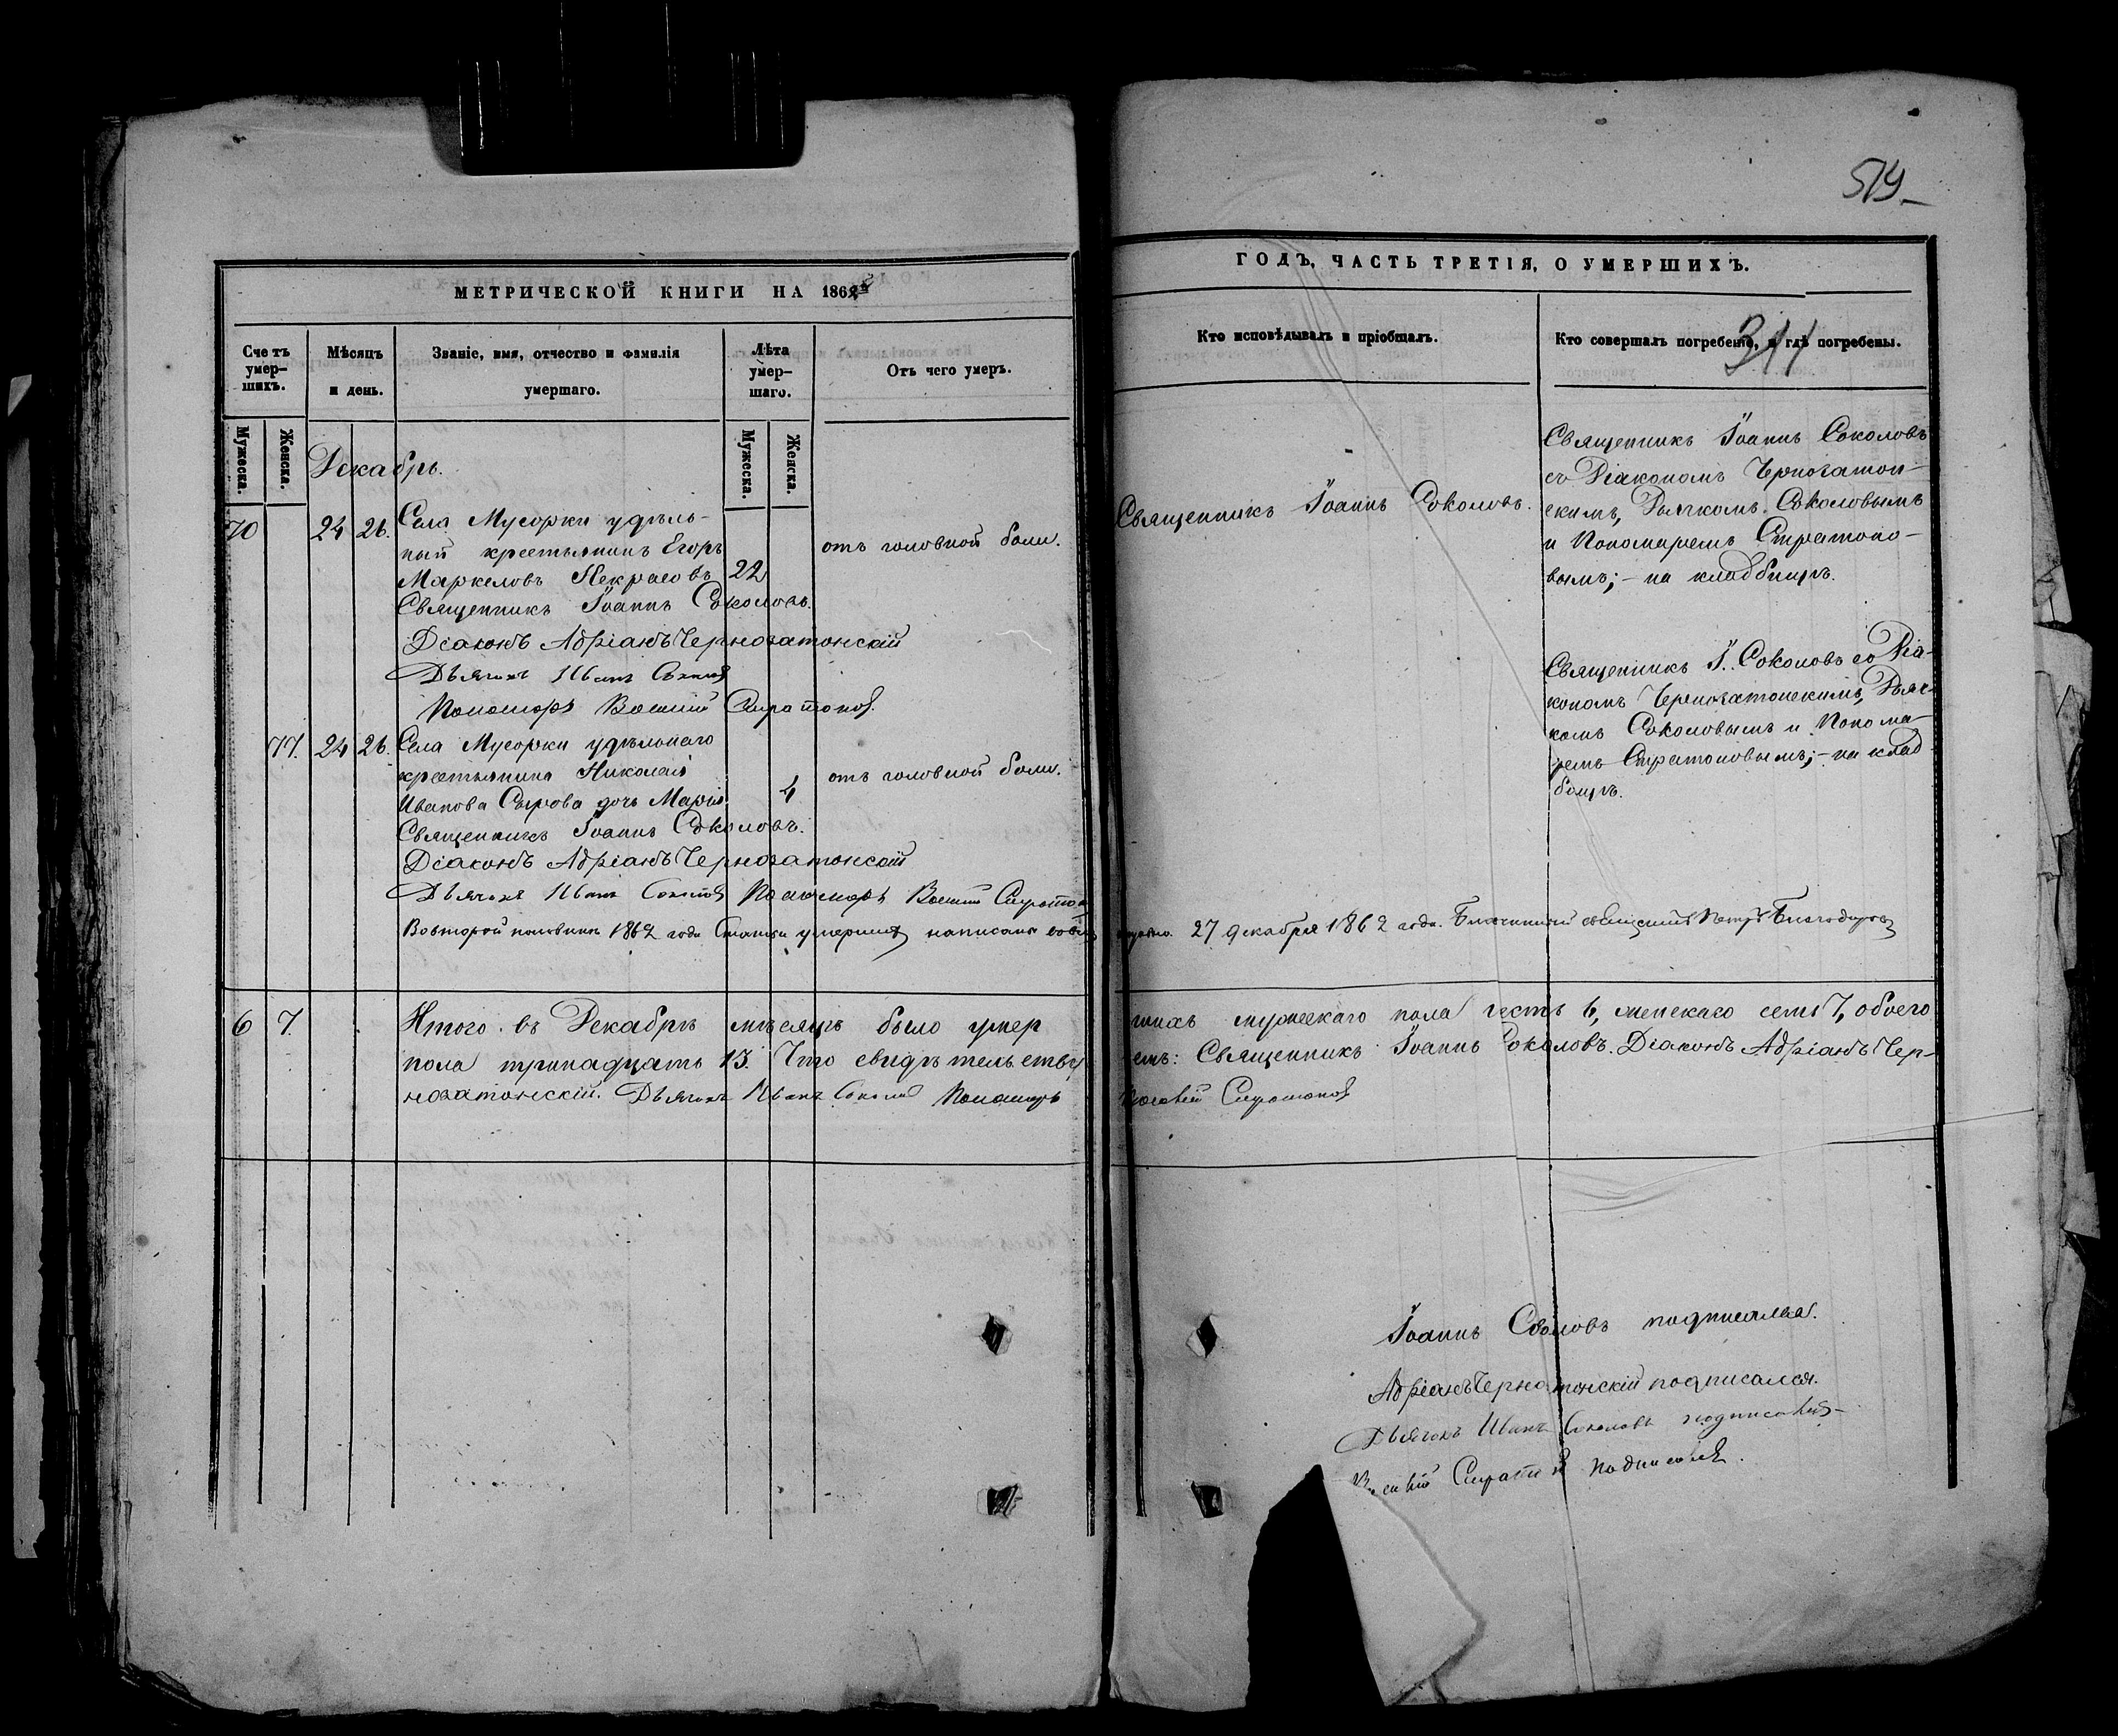 519
МЕТРИЧЕСКОЙ КНИГИ НА 1862
ГОДЪ, ЧАСТЬ ТРЕТІЯ, О УМЕРШИХЪ.
Счетъ умер-
шихъ.
Мѣсяцъ
и день.
Званіе, имя, отчество и фамилія
умершаго.
Лѣта
умер-
шаго.
Отъ чего умеръ.
Кто исповѣдывалъ и пріобщалъ.
Кто совершалъ погребеніе, и гдѣ погребены.
311
Мужеска.
Женска.
Мужеска.
Женска.
Декабрь.
70 24 26.
Села Мусорки удѣль-
ный крестьянинъ Егоръ
Маркеловъ Некрасовъ 22
отъ головной боли.
Священникъ Іоаннъ Соколовъ.
Священникъ Іоаннъ Соколовъ
съ Діакономъ Черногатон-
скимъ, Дьячкомъ Соколовымъ
и Пономаремъ Стратоно-
вымъ; - на кладбищѣ.
Священникъ Іоаннъ Соколовъ.
Діаконъ Адріанъ Черногатонскій
Дьячокъ Иванъ Соколовъ
Пономарь Стратоновъ
77. 24 26.
Села Мусорки удѣльнаго
крестьянина Николая
Иванова Сырова дочь Марія 4
отъ головной боли.
Священникъ І. Соколовъ со Діа-
кономъ Черногатонскимъ, Дьяч-
комъ Соколовымъ и Понома-
ремъ Стратоновымъ; - на клад
бищѣ.
Священникъ Іоаннъ Соколовъ.
Діаконъ Адріанъ Черногатонскій
Дьячокъ Иванъ Соколовъ Пономарь
Во второй половинѣ 1862 года Статьи умершихъ написаны
27 декабря 1862 года. Благочинный священникъ Петръ
6 7.
Итого въ Декабрѣ мѣсяцѣ было умер
шихъ мужескаго пола шесть 6, женскаго семь 7, обоего
пола тринадцать 13. Что свидѣтельству
емъ: Священникъ Іоаннъ Соколовъ. Діаконъ Адріанъ Чер-
ногатонскій. Дьячокъ Иванъ Соколовъ Пономарь
Стратоновъ
Іоаннъ Соколовъ подписался.
Адріанъ Черногатонскій подписался.
Дьячокъ Иванъ Соколовъ подписался
подписался.